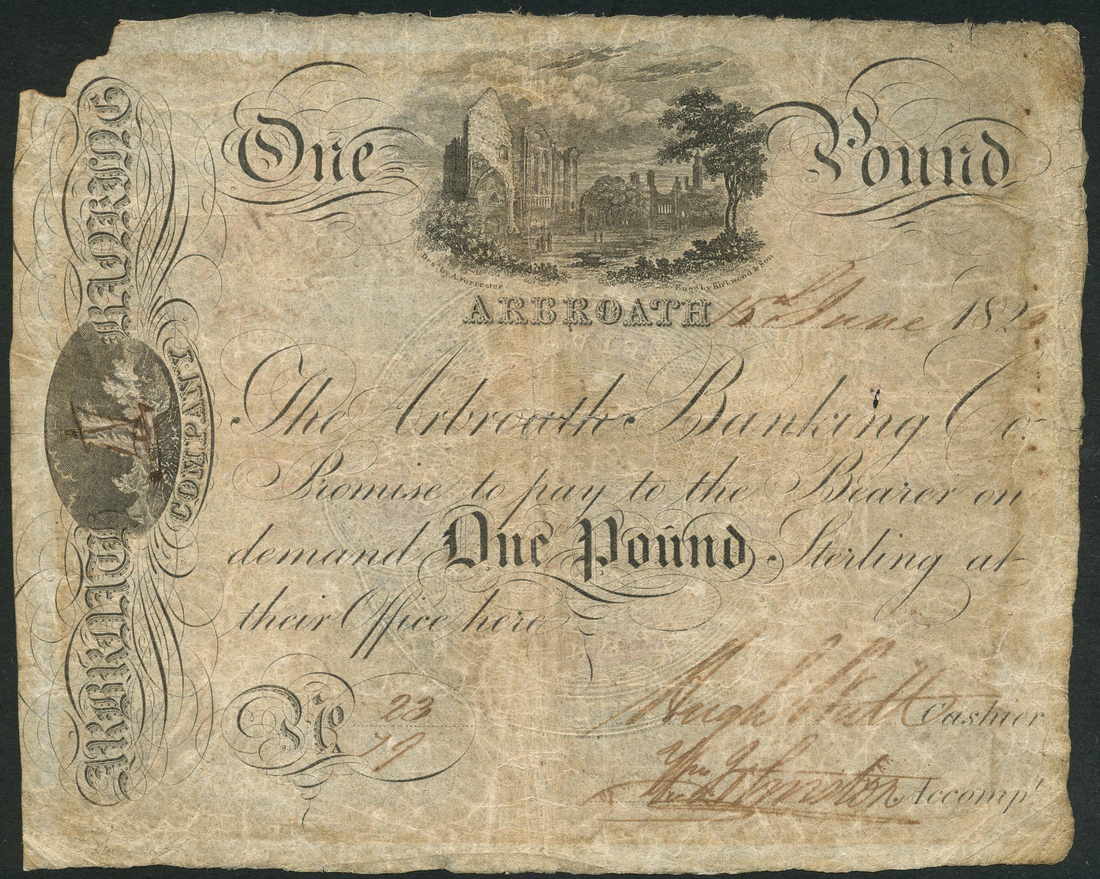 One Pound
Engd by Kirkwood & Son
ARBROATH 15 June 182
The Arbroath Banking Co.
Promise to pay to the Bearer on
demand One Pound Sterling at
their Office here
No 23
79
Hugh Watt Cashier
Wm Johnston Accompt
ARBROATH BANKING
COMPANY